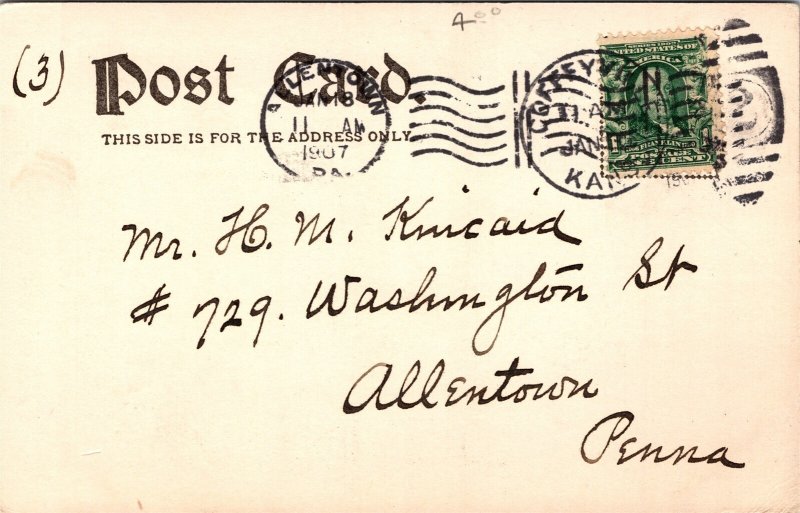 4.00
(3)
Post Card.
THIS SIDE IS FOR THE ADDRESS ONLY
ALLENTOWN
JAN 18
11 AM
1907
PA.
11 AM
JAN
KAN
SERIES 1902
UNITED STATES OF
AMERICA
Mr. H. M. Kincaid
# 729. Washington St
Allentown
Penna